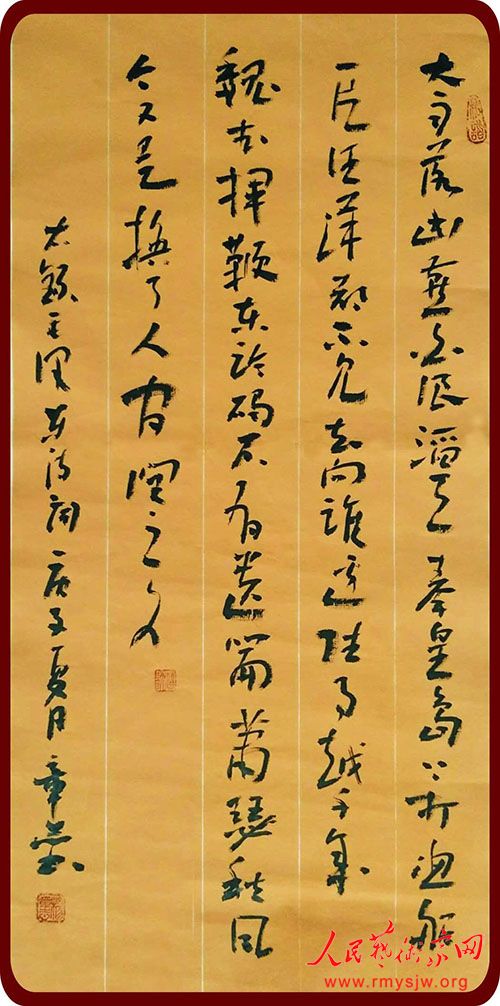 大雨落幽燕白浪滔天秦皇島外打漁船
一片汪洋都不见知向誰边往事越千年
魏武揮鞭東臨碣石有遗篇萧瑟秋風
今又是換了人间
錄毛澤东诗词庚子夏月章
人民艺术家网
www.rmysjw.org